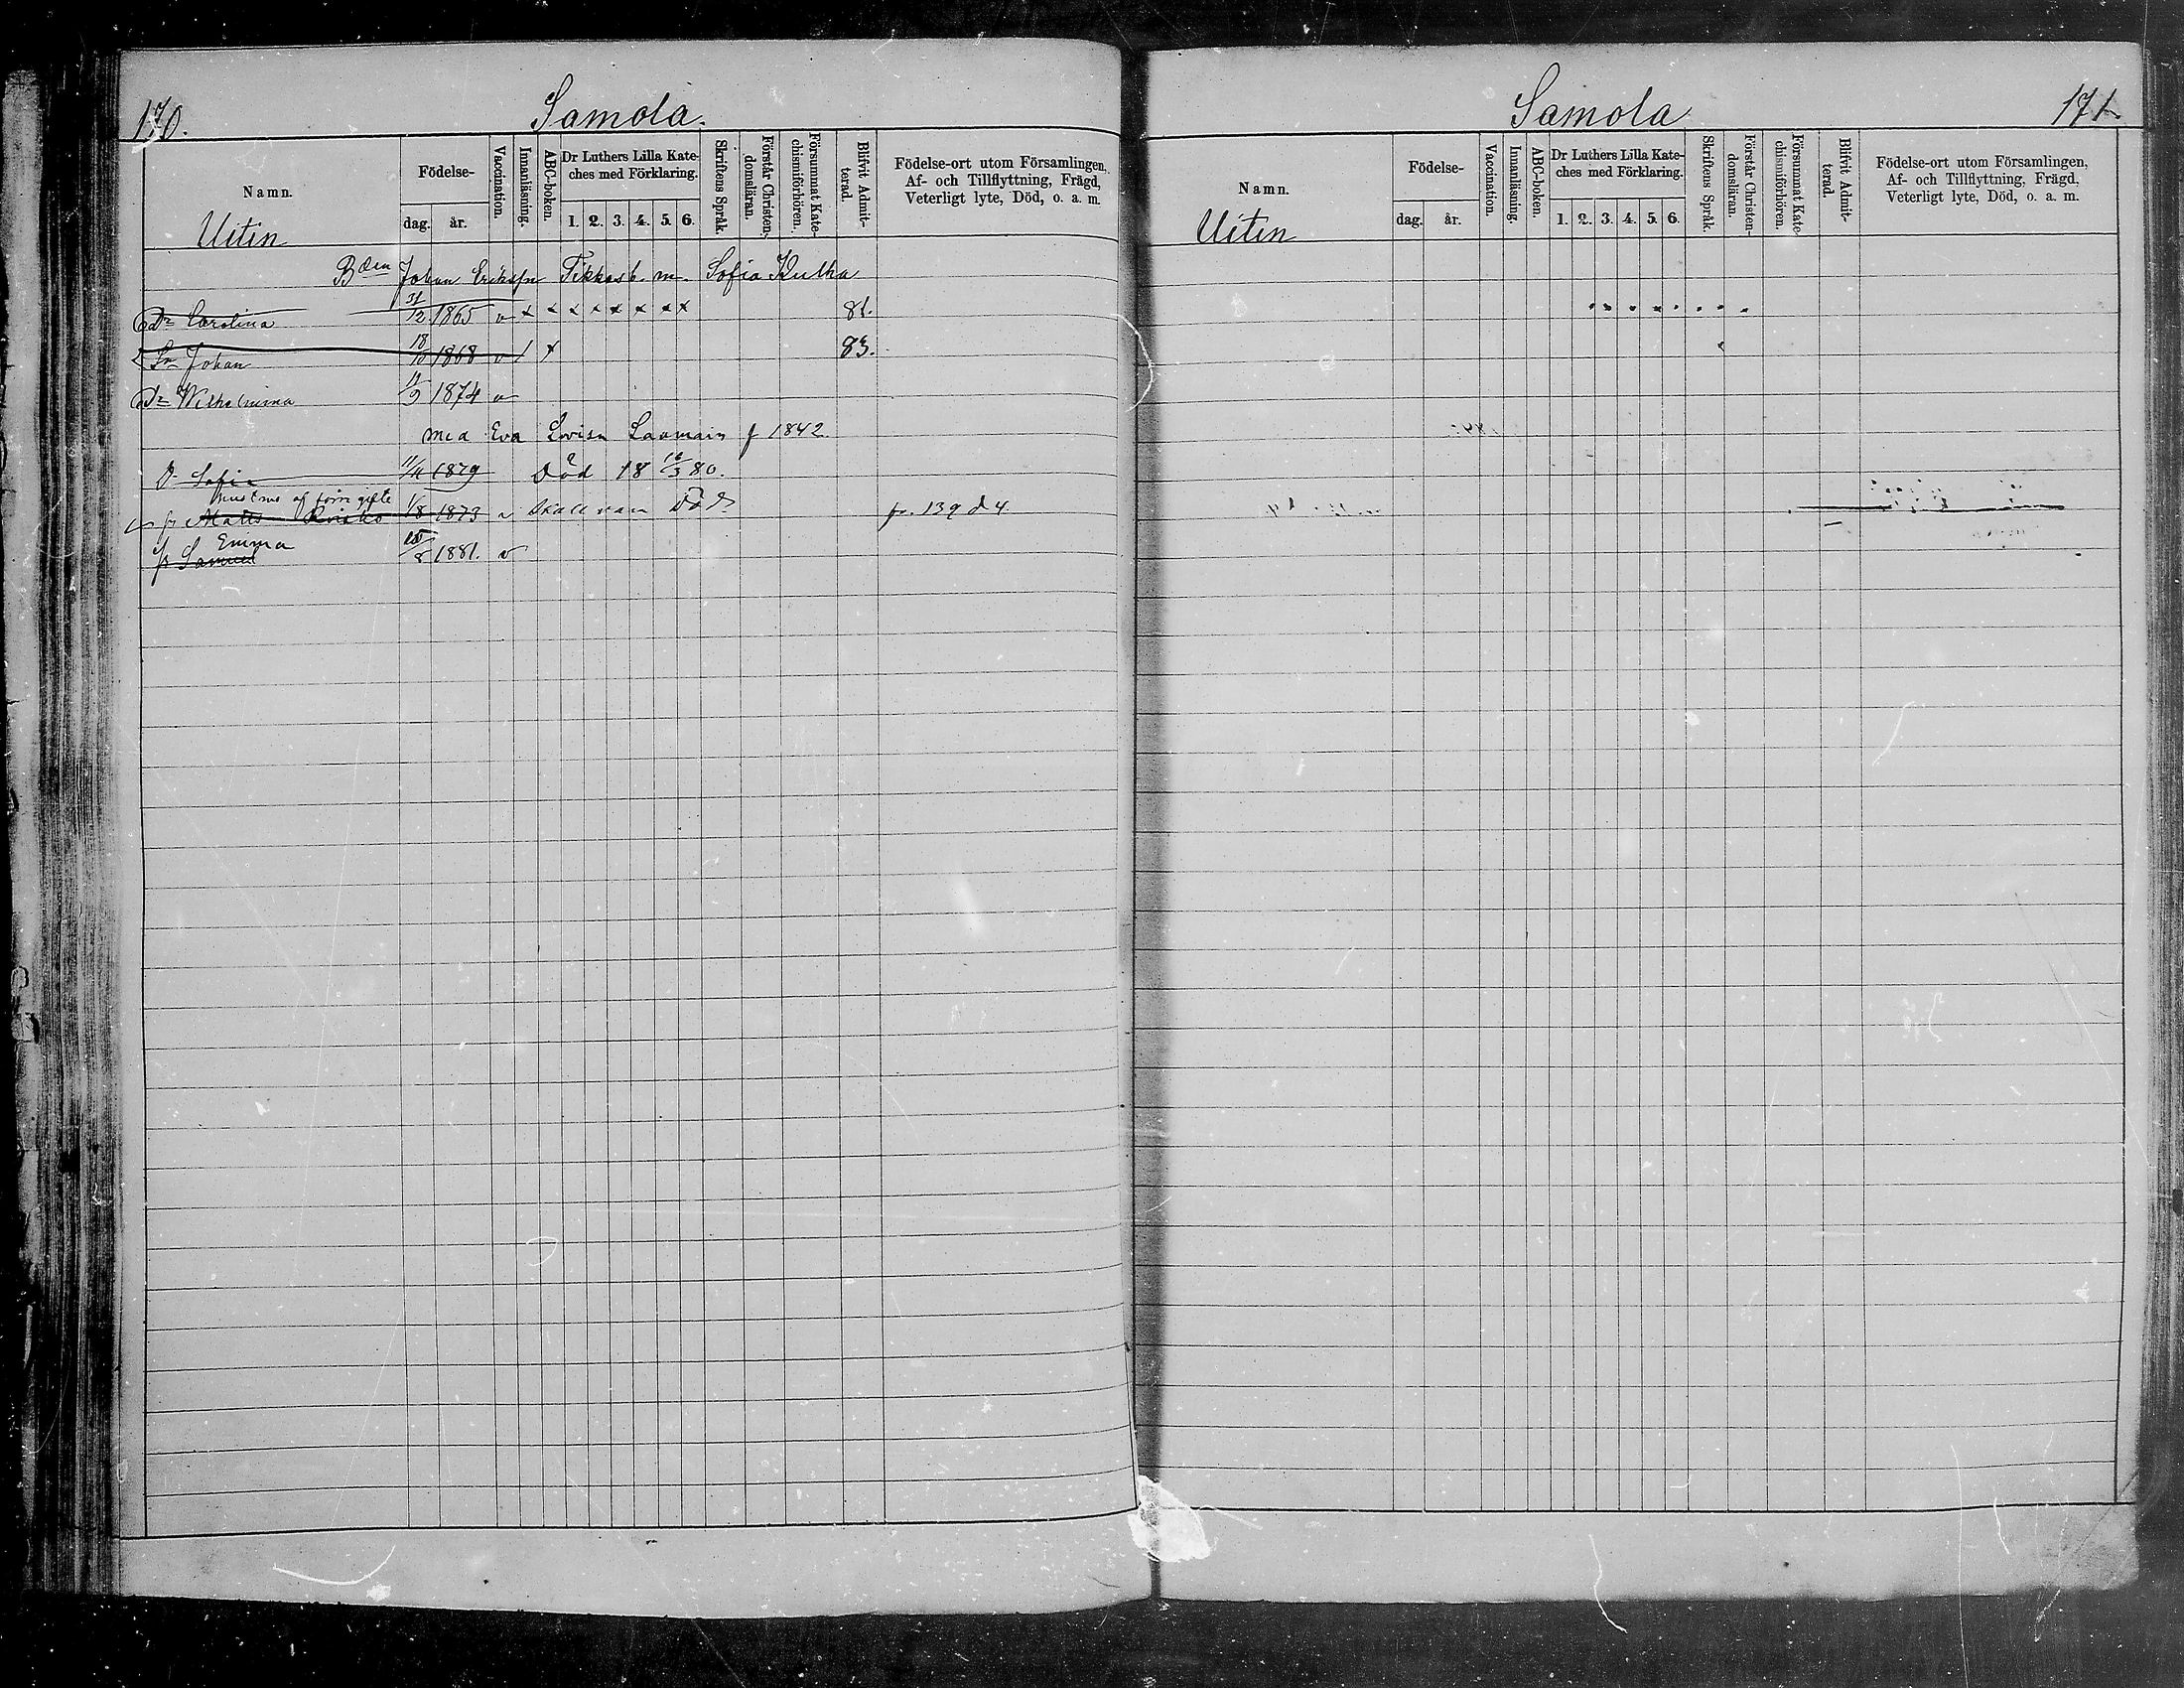 170.
Samola.
Namn.
Födelse-
dag. år.
Vaccination.
Innanläsning.
ABC-boken.
Dr Luthers Lilla Kate-
ches med Förklaring.
1. 2. 3. 4. 5. 6.
Skriftens Språk.
Förstår Christen-
domsläran.
Försummat Kate-
chismiförhören.
Blifvit Admit-
terad.
Födelse-ort utom Församlingen,
Af- och Tillflyttning, Frägd,
Veterligt lyte, Död, o. a. m.
Uitin
Johan Eriksson m. Sofia Kulha
Dr Carolina 31/12 1865 v x x x x x x x x 81.
Sn Johan 18/10 1868 v / x 83.
Dr Wilhelmina 1874 v
med Eva Lovisa f 1842.
D. Sofia 11/11 1879 Död 18 16/3 80.
af förre gifte
Matts 1/8 1873 v Död fr. 139 d 4.
Emma
Samuel /8 1881. v
Samola
171.
Namn.
Födelse-
dag. år.
Vaccination.
Innanläsning.
ABC-boken.
Dr Luthers Lilla Kate-
ches med Förklaring.
1. 2. 3. 4. 5. 6.
Skriftens Språk.
Förstår Christen-
domsläran.
Försummat Kate-
chismiförhören.
Blifvit Admit-
terad.
Födelse-ort utom Församlingen,
Af- och Tillflyttning, Frägd,
Veterligt lyte, Död, o. a. m.
Uitin